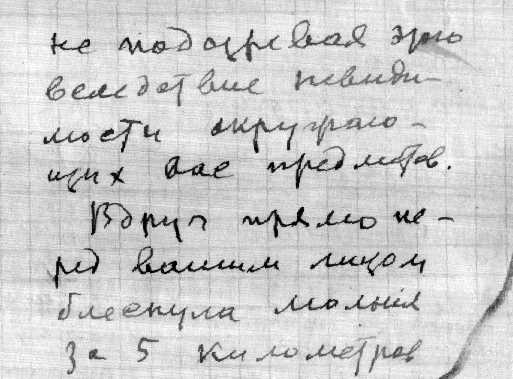 не подозревая этого
вследствие невиди-
мости окружаю-
щих вас предметов.
Вдруг прямо пе-
ред вашим лицом
блеснула молния
за 5 километров